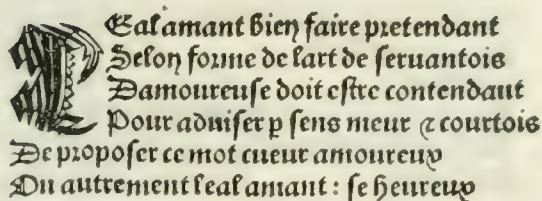 Leal amant bien faire pretendant
Selon forme de lart de seruantois
Damoureuse doit estre contendant
Pour aduiser p sens meur ⁊ courtois
De proposer ce mot cueur amoureux
Ou autrement leal amant : se heureux